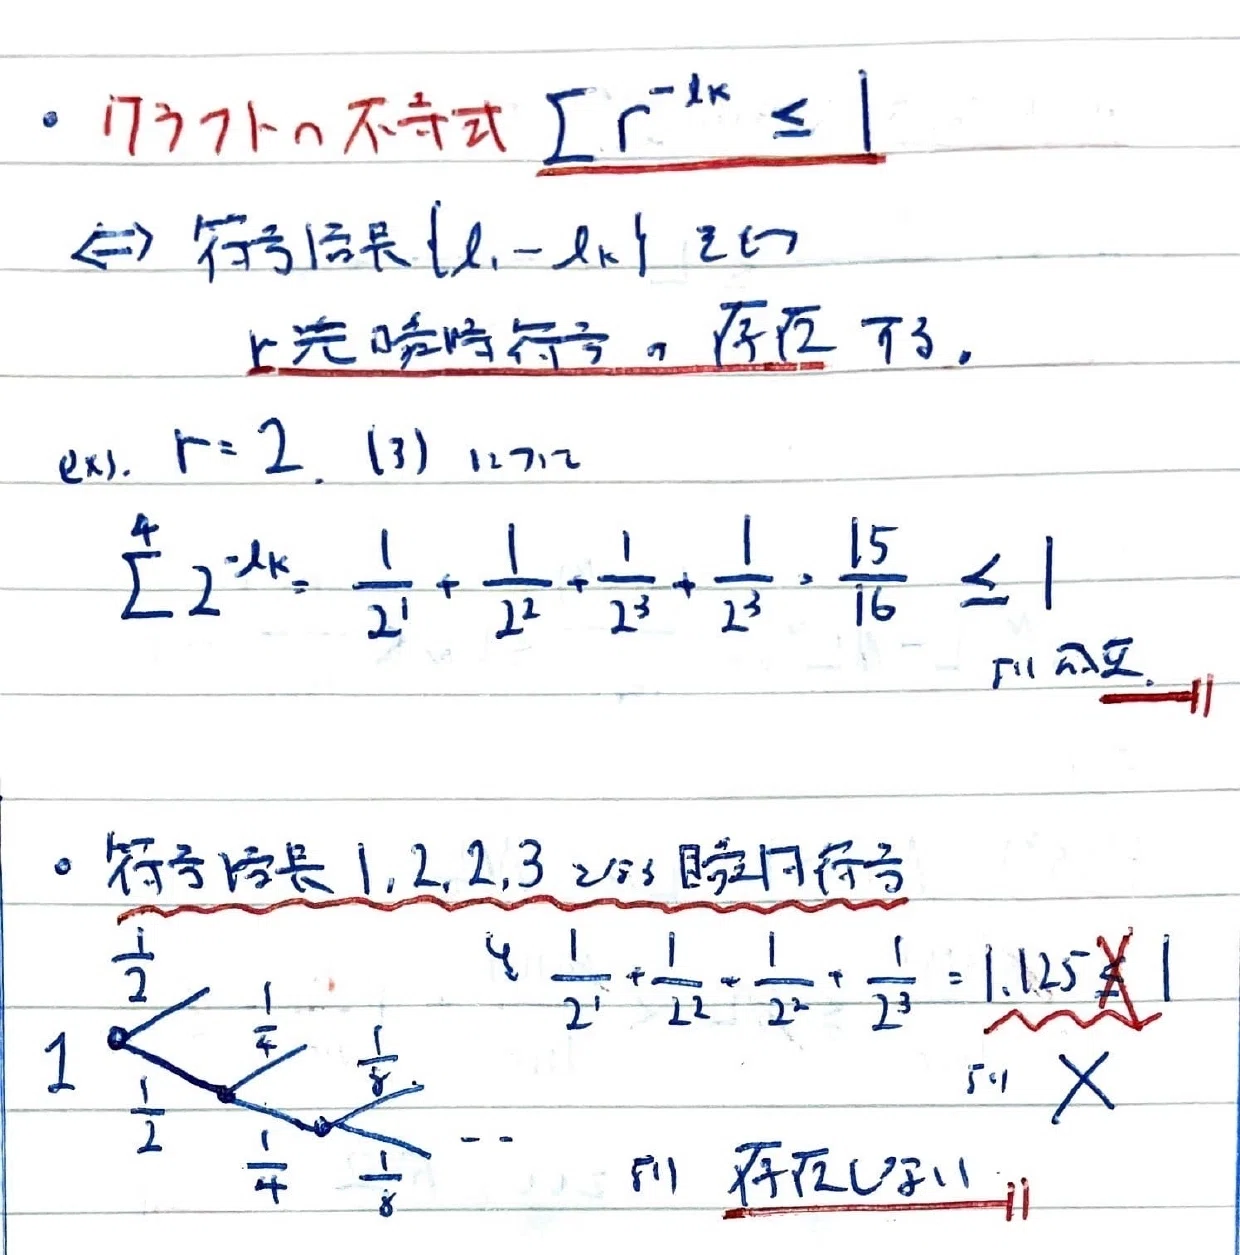 ・クラフトの不等式 Σ r^{-lk} ≤ 1
⇔ 符号語長 {l₁ - lk} をもつ
r元瞬時符号が存在する.
ex). r = 2. (3) について
Σ^4 2^{-lk} = 1/2^1 + 1/2^2 + 1/2^3 + 1/2^3 = 15/16 ≤ 1
より 成立.
・符号語長 1, 2, 2, 3 となる瞬時符号
1/2^1 + 1/2^2 + 1/2^2 + 1/2^3 = 1.125 ≤ 1
1/2 1/4 1/8
1
1/2 1/4 1/8 --
より ×
より 存在しない